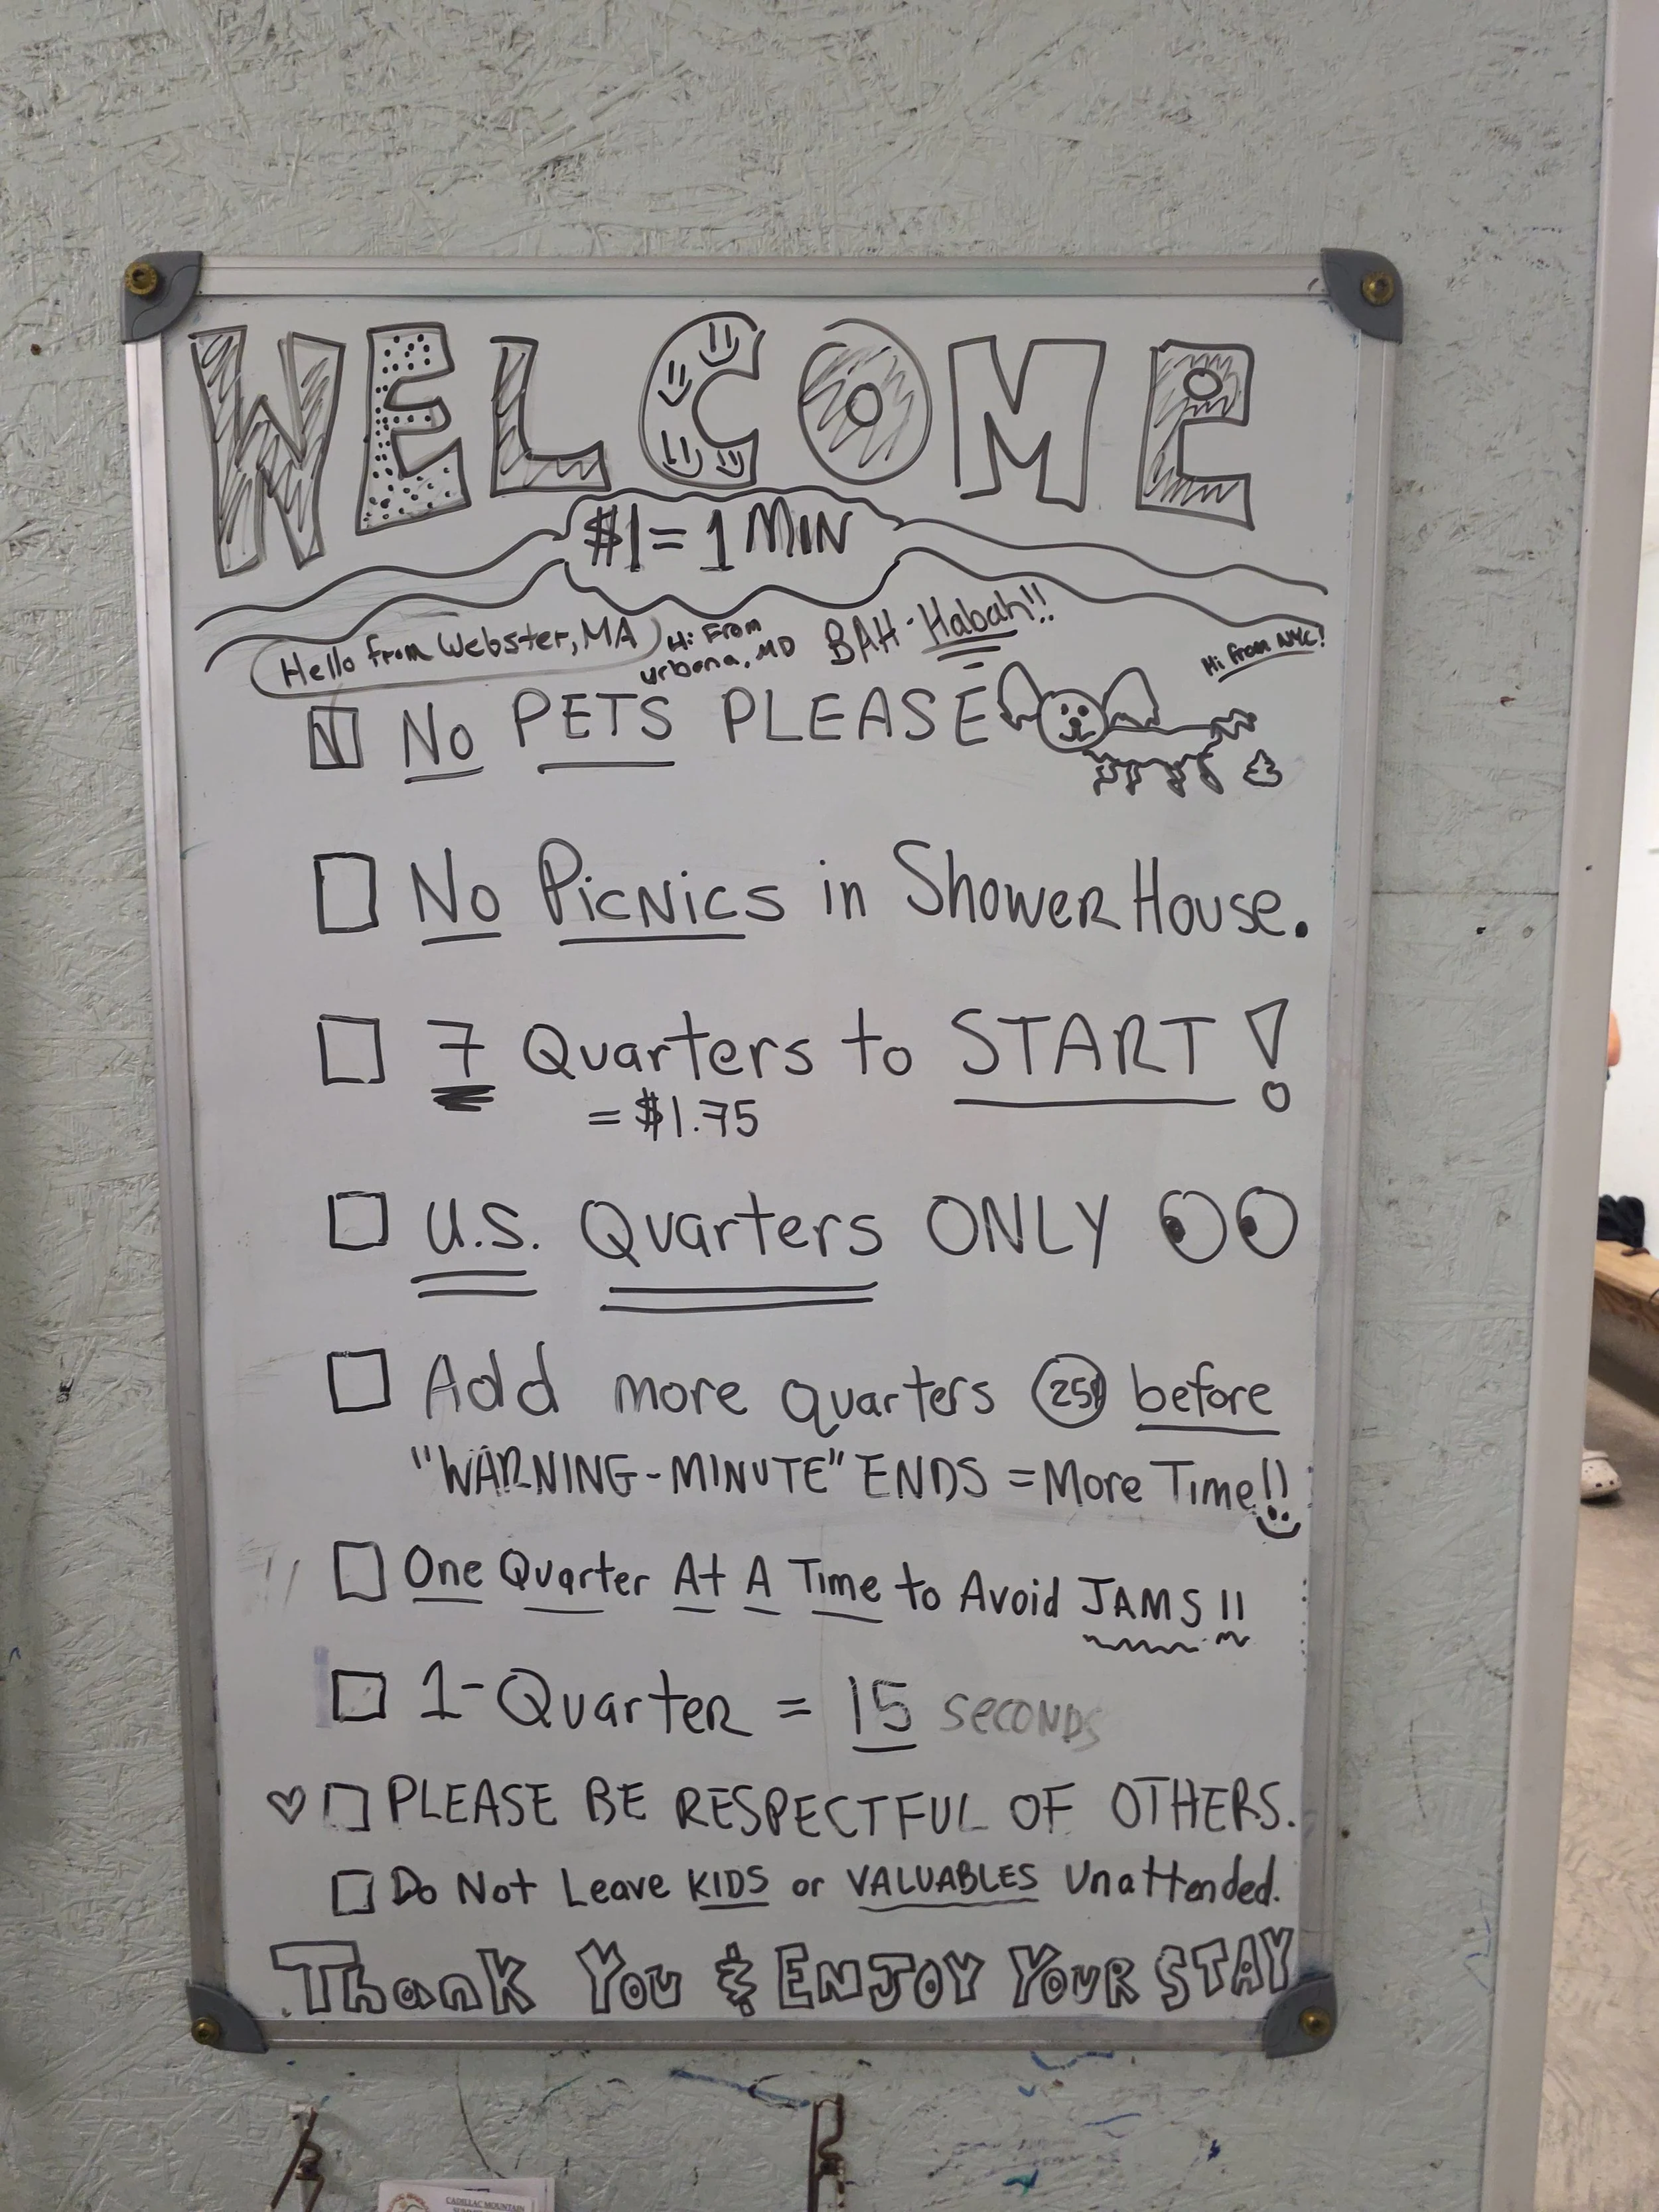 WELCOME
$1 = 1 MIN
Hello from Webster, MA
Hi From
urbana, MD
BAH-Habah!!
Hi from NYC!
No PETS PLEASE
No Picnics in Shower House.
7 Quarters to START!
= $1.75
U.S. Quarters ONLY
Add more quarters 25¢ before
"WARNING-MINUTE" ENDS = More Time!!
One Quarter At A Time to Avoid JAMS!!
1-Quarter = 15 seconds
PLEASE BE RESPECTFUL OF OTHERS.
Do Not Leave KIDS or VALUABLES Unattended.
Thank You & ENJOY YOUR STAY
CADILLAC MOUNTAIN